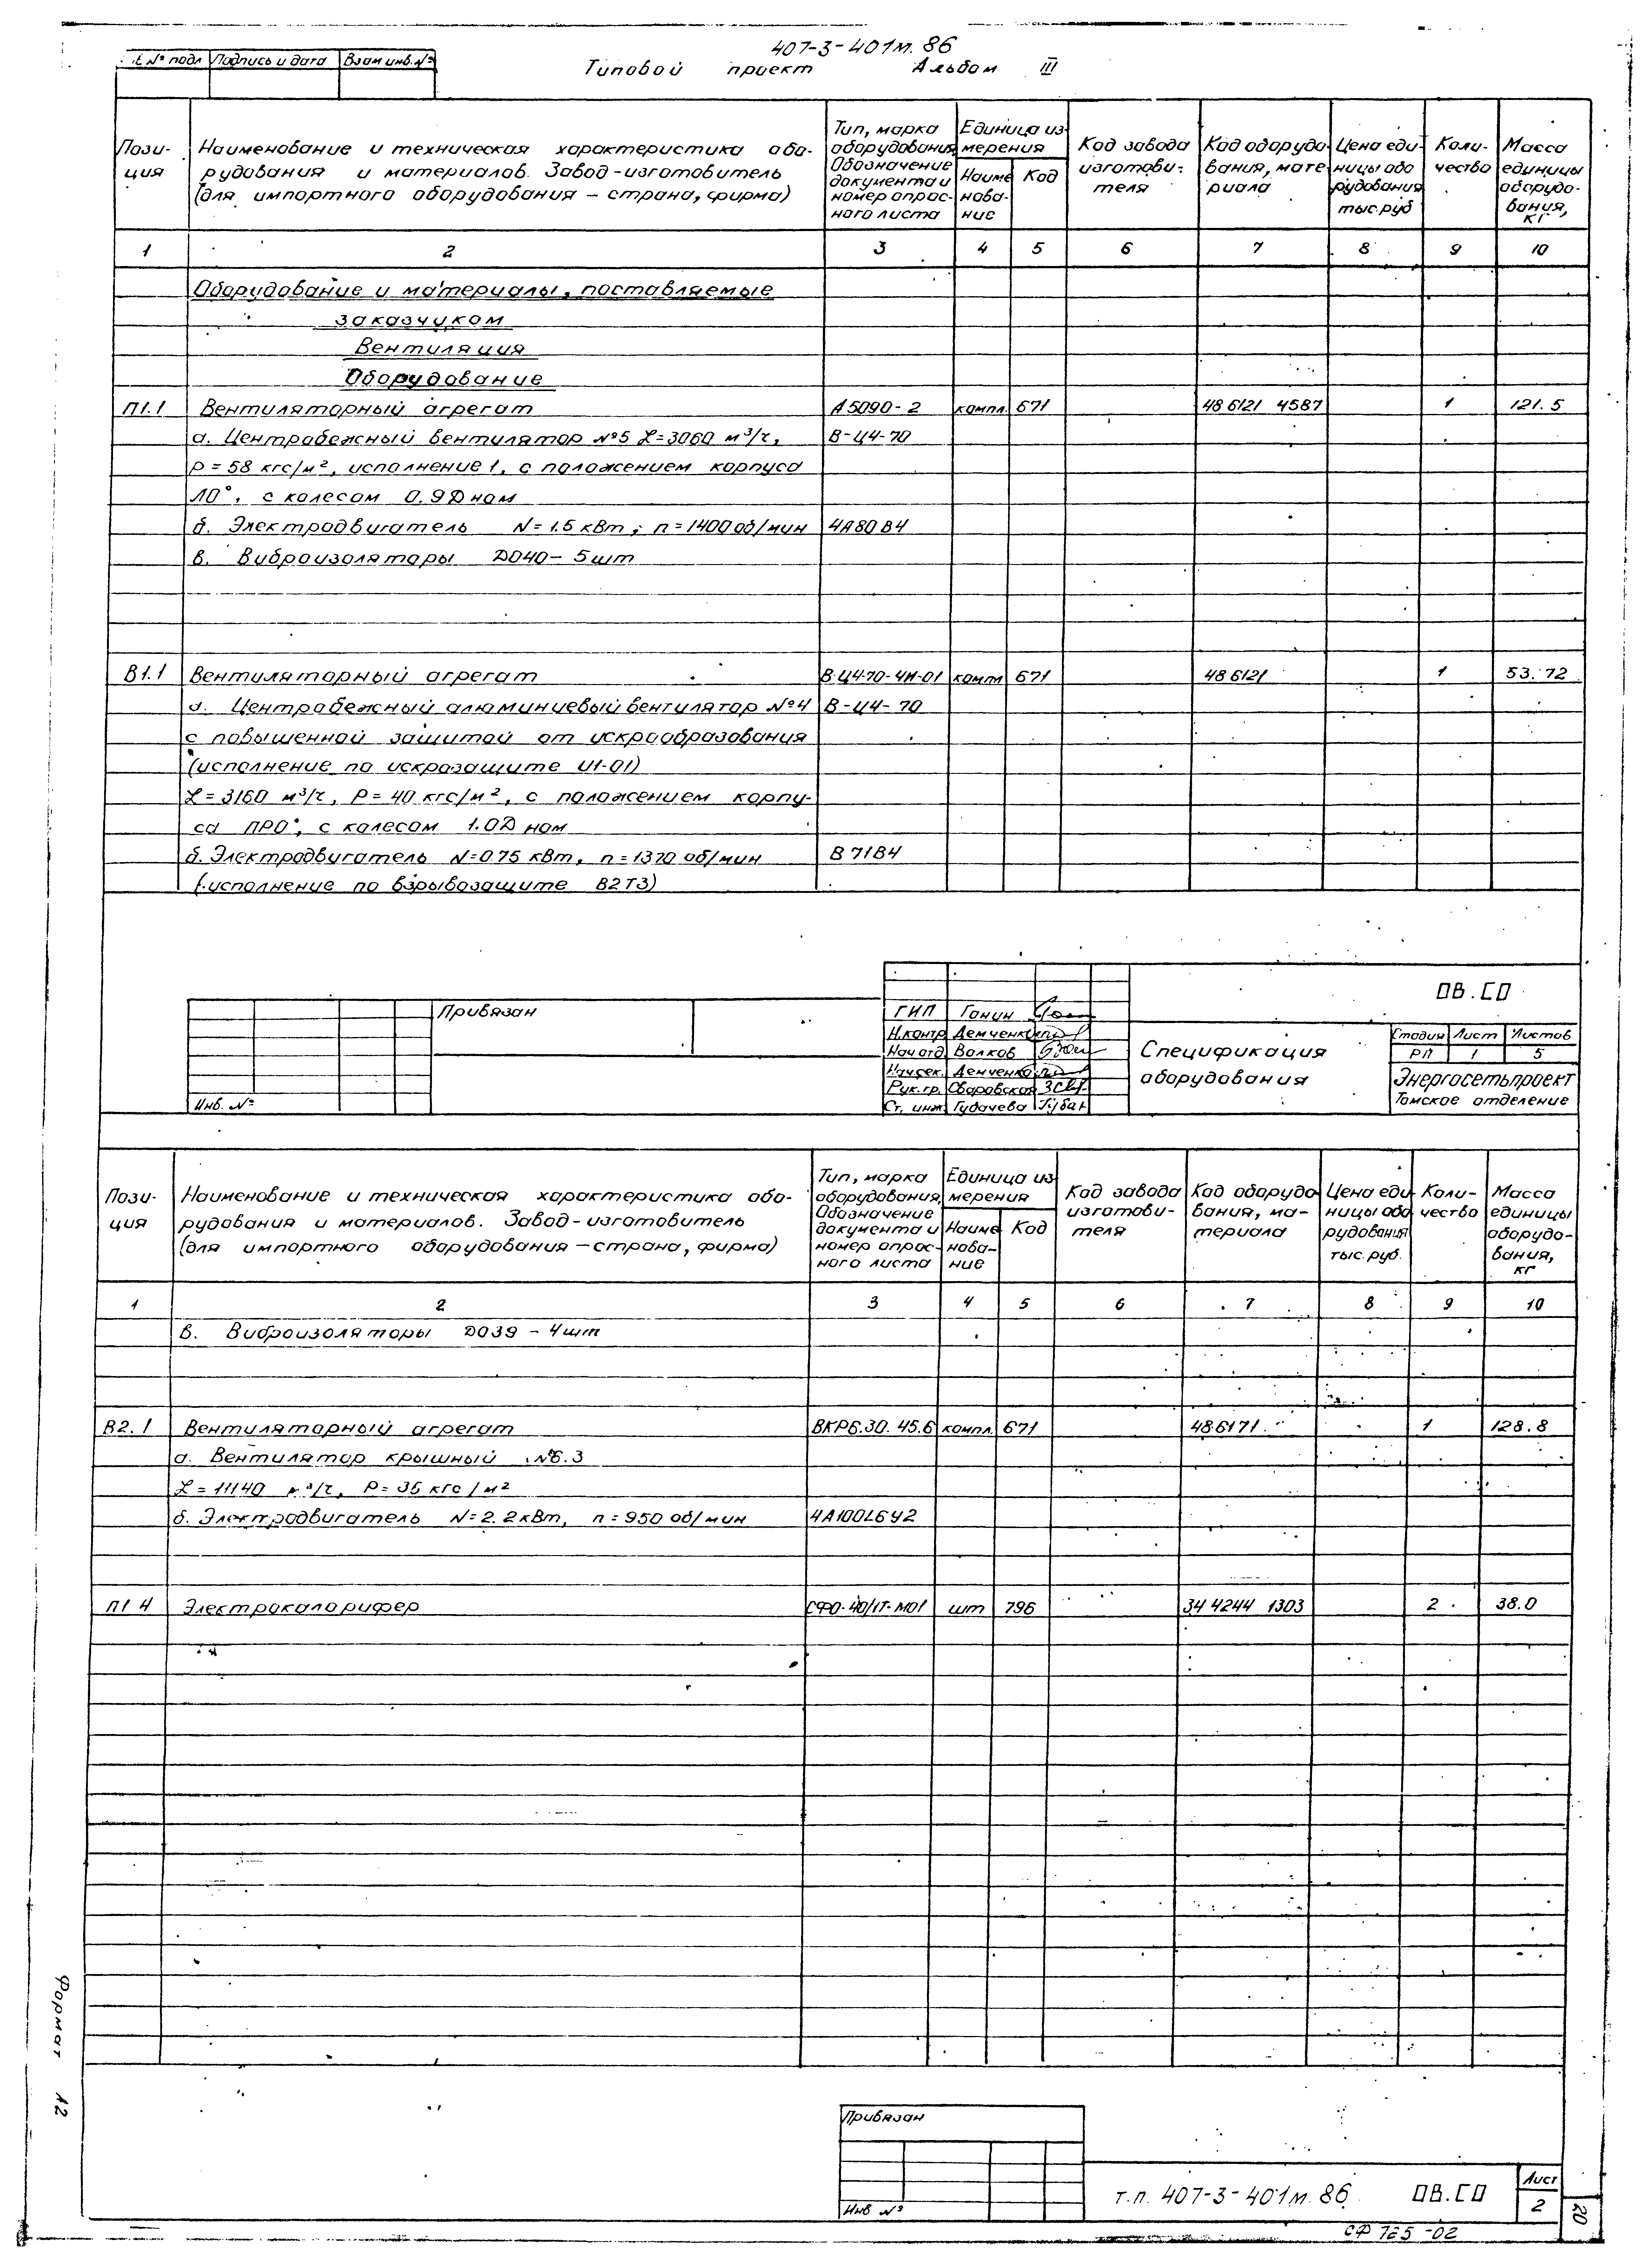 407-3-401м.86
Типовой проект Альбом III
№ подл Подпись и дата Взам инв. №
Пози-
ция
Наименование и техническая характеристика обо-
рудования и материалов. Завод-изготовитель
(для импортного оборудования – страна, фирма)
Тип, марка
оборудования
Обозначение
документа и
номер опрос-
ного листа
Единица из-
мерения
Наиме
нова-
ние
Код
Код завода
изготови-
теля
Код оборудо
вания, мате-
риала
Цена еди-
ницы обо
рудования
тыс.руб
Коли-
чество
Масса
единицы
оборудо-
вания,
кг
1 2 3 4 5 6 7 8 9 10
Оборудование и материалы, поставляемые
заказчиком
Вентиляция
Оборудование
П1.1 Вентиляторный агрегат А5090-2 компл. 671 48 6121 4587 1 121.5
а. Центробежный вентилятор №5 L=3060 м³/ч, В-Ц4-70
Р = 58 кгс/м², исполнение 1, с положением корпуса
Л0°, с колесом 0.9 Дном
б. Электродвигатель N=1.5 кВт; n=1400 об/мин 4А80В4
в. Виброизоляторы ДО40 – 5шт
В1.1 Вентиляторный агрегат В-Ц4-70-4И-01 компл 671 48 6121 1 53.72
а. Центробежный алюминиевый вентилятор №4 В-Ц4-70
с повышенной защитой от искрообразования
(исполнение по искрозащите И1-01)
L=3160 м³/ч, Р=40 кгс/м², с положением корпу-
са ПР0°, с колесом 1.0Д ном
б. Электродвигатель N=0.75 кВт, n=1370 об/мин В71В4
(исполнение по взрывозащите В2Т3)
Привязан
Инв. №
ГИП Гонин
Н.контр Демченко
Нач отд Волков
Нач.сек. Демченко
Рук.гр. Сваровская
Ст. инж Губачева
ОВ.СО
Спецификация
оборудования
Стадия Лист Листов
РП 1 5
Энергосетьпроект
Томское отделение
Пози-
ция
Наименование и техническая характеристика обо-
рудования и материалов. Завод-изготовитель
(для импортного оборудования – страна, фирма)
Тип, марка
оборудования,
Обозначение
документа и
номер опрос-
ного листа
Единица из
мерения
Наиме
нова-
ние
Код
Код завода
изготови-
теля
Код оборудо
вания, ма-
териала
Цена еди
ницы обо
рудования
тыс. руб.
Коли-
чество
Масса
единицы
оборудо-
вания,
кг
1 2 3 4 5 6 7 8 9 10
в. Виброизоляторы ДО39 – 4шт
В2.1 Вентиляторный агрегат ВКР6.30.45.6 компл. 671 486171 1 128.8
а. Вентилятор крышный №6.3
L=11140 м³/ч, Р=35 кгс/м²
б. Электродвигатель N=2.2 кВт, n=950 об/мин 4А100L6У2
П1.4 Электрокалорифер СФО-40/1Т-М01 шт 796 34 4244 1303 2 38.0
Формат 12
Привязан
Инв №
т.п. 407-3-401м.86 ОВ.СО
Лист
2
20
СФ 765-02